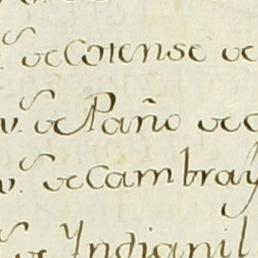 de Cotense de
v.s de Paño de
v.s de Cambray
de Yndianil